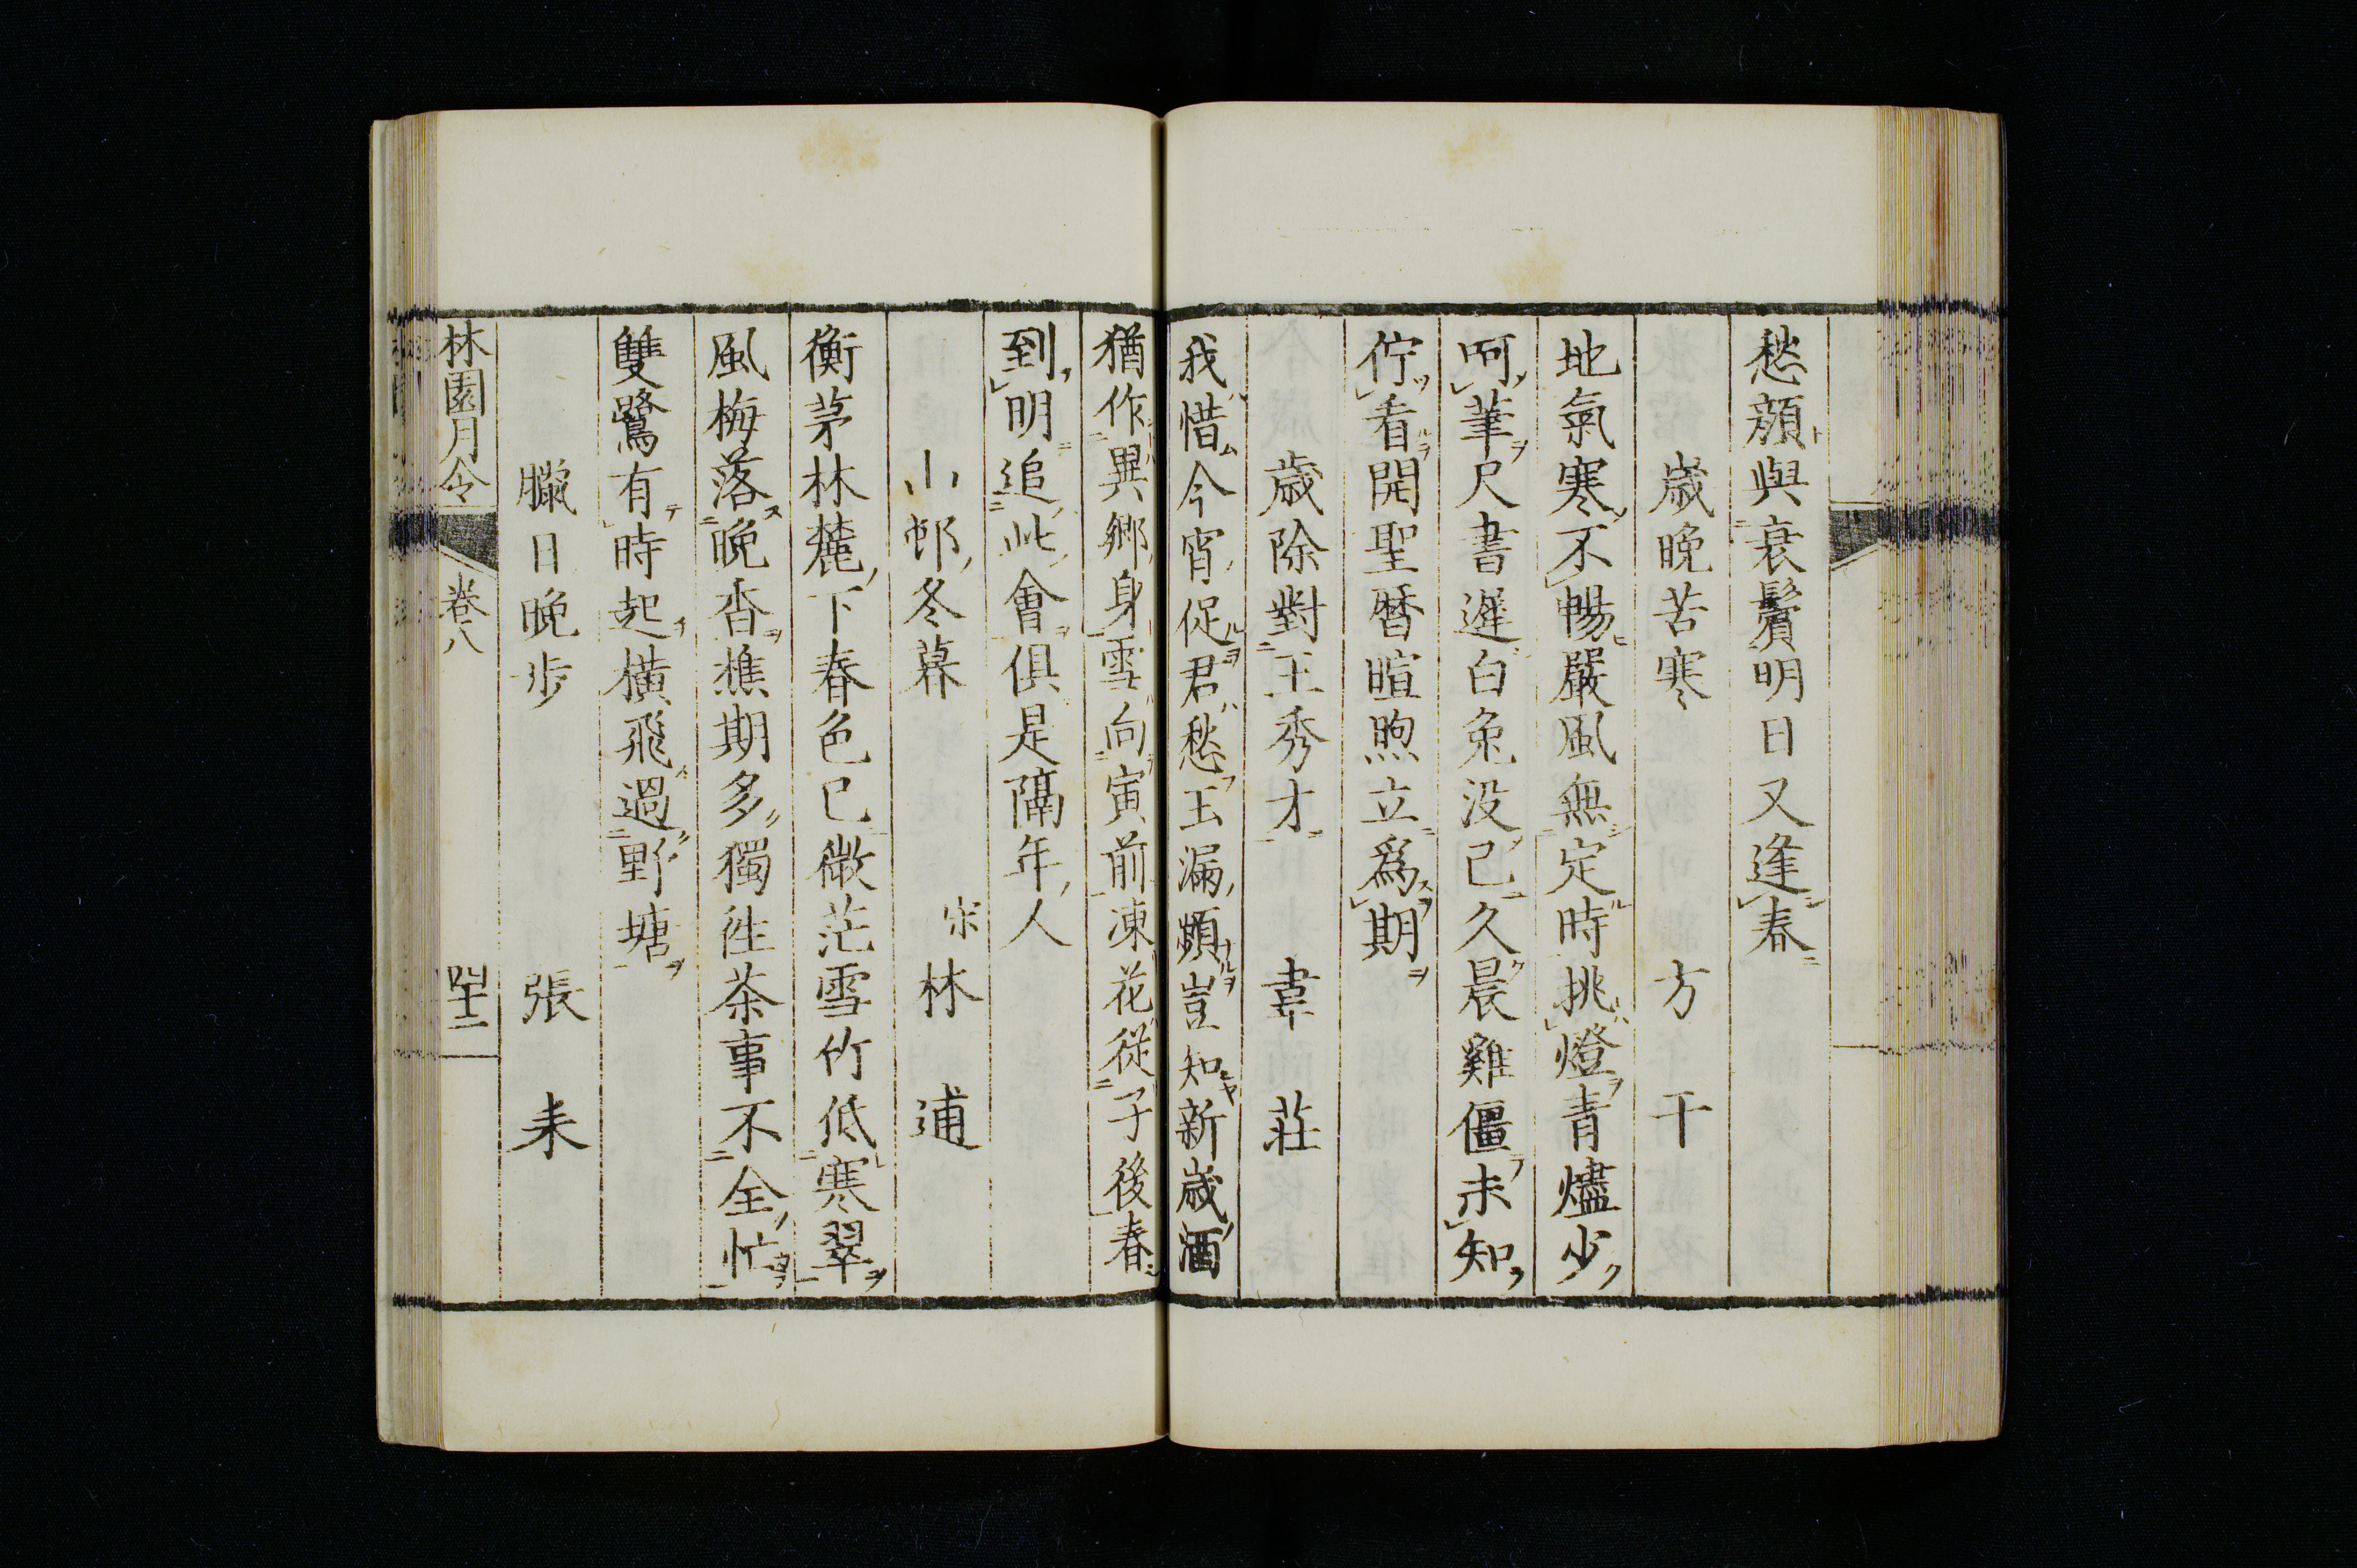 愁顔與衰鬢明日又逢春
歳晩苦寒　方干
地氣寒不暢嚴風無定時挑燈青燼少
呵筆尺書遲白兔没已久晨雞僵未知
佇看開聖暦暄煦立爲期
歳除對王秀才　韋莊
我惜今宵促君愁玉漏頻豈知新歳酒
猶作異郷身雪向寅前凍花從子後春
到明追此會俱是隔年人
小邨冬暮　宋林逋
衡茅林麓下春色已微茫雪竹低寒翠
風梅落晩香樵期多獨徃茶事不全忙
雙鷺有時起橫飛過野塘
臘日晩歩　張耒
林園月令　卷八　四十二